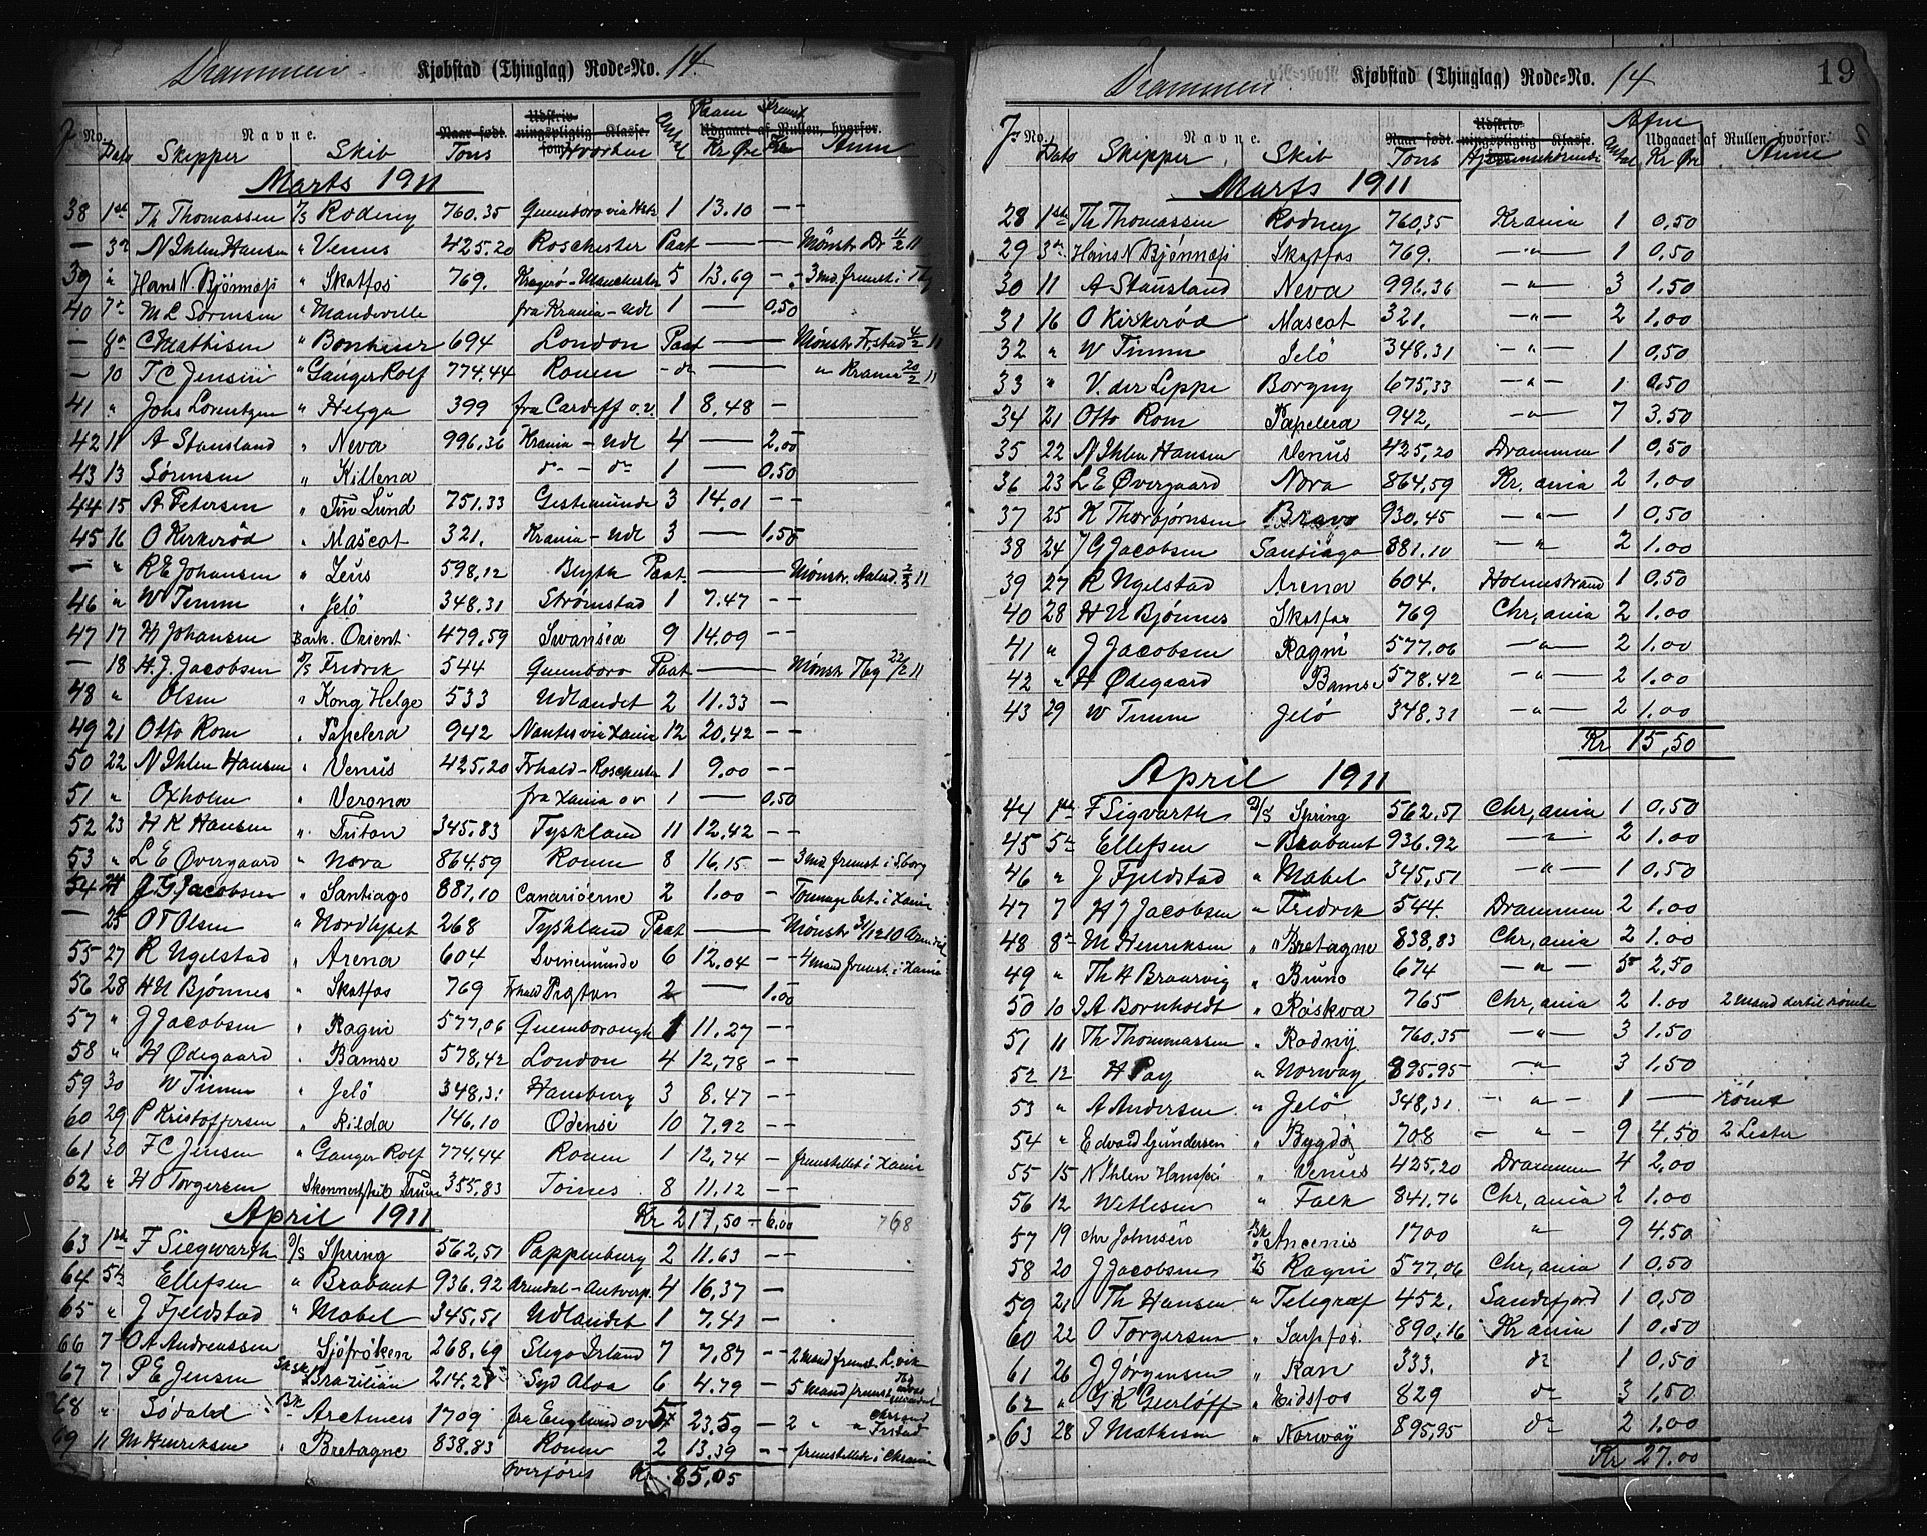 Drammen Kjøbstad (Thinglag) Rode-No. 14.
No. Navne. Naar født. Udskriv-ningspligtig Klasse. Udgaaet af Rullen, hvorfor.
Dato Skipper Skib Tons Hvorhen Kr Øre Anm
Marts 1911
38 1ste Th Thomassen D/S Rodney 760.35 1 13.10 - -
- 3 N Ihlen Hansen " Venus 425.20 Roschester Paat - - Mønstr. Dr 11/2 11
39 " Hans N. Bjønnæs " Skotfos 769. Kragerø - Manchester 5 13.69 - -
40 7 M L Sørensen " Mandeville fra Krania - Udl 1 - 0.50
- 8 C Mathisen " Bonheur 694 London Paat - Mønstr. Fr.stad 4/2 11
- 10 F C Jensen " Ganger Rolf 774.44 Rouen - do - " Krania 20/2 11
41 " Johs Lorentzen " Helga 399 fra Cardiff o.v. 1 8.48 -
42 11 A Stausland " Neva 996.36 Krania - Udl 4 - 2.00
43 13 Sørensen " Killena do - do 1 - 0.50
44 15 A Petersen " Finn Lund 751.33 Gestemünde 3 14.01 - -
45 16 O Kirkerød " Mascot 321. Krania - Udl 3 - 1.50
- " R E Johansen " Zeus 598.12 Blyth Paat. - Mønstr. Aalesd. 2/3 11
46 " W Timm " Jelø 348.31 Strømstad 1 7.47 - -
47 17 H Johansen Bark. Orient 479.59 Swansea 9 14.09 - -
- 18 H. J. Jacobsen D/S Fredrik 544 Quemboro Paat - Mønstr. Tbg 22/2 11
48 " Olsen " Kong Helge 533 Udlandet 2 11.33 -
49 21 Otto Rom " Papelera 942 Nantes via Xania 12 20.42 - -
50 22 N Ihlen Hansen " Venus 425.20 Frhald - Roschester 1 9.00 - -
51 " Oxholm " Verona fra Xania o v 1 - 0.50
52 23 H K Hansen " Triton 345.83 Tyskland 11 12.42 - -
53 " L E Øvergaard " Nova 864.59 Rouen 8 16.15 - 3 md fremst i S.borg
54 24 J. G Jacobsen " Santiago 881.10 Canariøerne 2 1.00 - Tonnage bet. i Xania
- 25 O T Olsen " Nordlyset 268 Tyskland Paat - Mønstr 31/12 10 Arendal
55 27 R Ugelstad " Arena 604 Svinemünde 6 12.04 - - 4 mand fremst. i Xania
56 28 H N Bjønnes " Skotfos 769 Frhald Preston 2 - 1.00
57 " J Jacobsen " Ragni 577.06 Quemborough 1 11.27 - -
58 " H Ødegaard " Bamse 578.42 London 4 12.78 - -
59 30 W Timm " Jelö 348.31 Hamburg 3 8.47 - -
60 29 P Kristoffersen " Rilda 146.10 Odense 10 7.92 - -
61 30 F C Jensen " Ganger Rolf 774.44 Rouen 1 12.74 - fremstillet i Xania
62 " H O Torgersen Skonnertskib Truen 355.83 Toines 8 11.12 - -
April 1911 Kr 217.50 - 6.00 768
63 1ste F Siegwarth D/S Spring 562.51 Pappenburg 2 11.63 - -
64 5te Ellefsen " Brabant 936.92 Arendal - Antwerp. 4 16.37 -
65 " J Fjeldstad " Mabel 345.51 Udlandet 1 7.41 -
66 7 O A Andreassen Sjöfröken 268.69 Sligo Irland 7 7.87 - - 2 mand fremst. L.vik
67 7 P E Jensen Sk.sk. Brazilian 214.25 Syd Alva 6 4.79 - - 5 mand fremst
68 " Sødahl Bk Arctmeus 1709 fra England o v 23.59 - 2 " "
69 11 M Henriksen " Bretagne 838.83 Rouen 2 13.39 - - fremstillet i Chrania
Overføres Kr 85.05
Drammen Kjøbstad (Thinglag) Rode-No. 14 19
No. Navne. Naar født. Udskriv-ningspligtig Klasse. Udgaaet af Rullen, hvorfor.
Dato Skipper Skib Tons Hjemmehørende Antal Kr Øre Anm
Marts 1911
28 1ste Th Thomassen Rodney 760,35 Krania 1 0,50
29 3 Hans N Bjønnæs Skotfos 769. - " - 1 0.50
30 11 A Stausland Neva 996.36 - " - 3 1.50
31 16 O Kirkerød Mascot 321. - " - 2 1.00
32 " W Timm Jelö 348.31 - " - 1 0.50
33 " V. der Lippe Borgny 675,33 - " - 1 0.50
34 21 Otto Rom Papelera 942, - " - 7 3.50
35 22 N Ihlen Hansen Venus 425,20 Drammen 1 0,50
36 23 L E Øvergaard Nova 864,59 Kr, ania 2 1.00
37 25 K Thorbjørnsen Bravo 930.45 - " - 1 0.50
38 24 J G Jacobsen Santiago 881.10 - " - 2 1.00
39 27 R Ugelstad Arena 604. Holmestrand 1 0.50
40 28 H N Bjønnes Skotfos 769 Chr, ania 2 1.00
41 " J Jacobsen Ragni 577.06 - " - 2 1.00
42 " H Ødegaard Bamse 578.42 - " - 2 1.00
43 29 W Timm Jelø 348.31 - " - 2 1.00
Kr 15,50
April 1911
44 1ste F Sigvarth D/S Spring 562.51 Chr, ania 1 0.50
45 5te Ellefsen " Brabant 936.92 - " - 2 1.00
46 " J Fjeldstad " Mabel 345,51 - " - 1 0.50
47 7 H J Jacobsen " Fredrik 544. Drammen 2 1.00
48 8 M Henriksen " Bretagne 838,83 Chr, ania 2 1.00
49 " Th H Braarvig " Bruno 674 - " - 5 2.50
50 10 J A Bornholdt " Røskva 765 Chr, ania 2 1.00 2 mand dertil rømte
51 11 Th Thommassen " Rodny 760.35 - " - 3 1.50
52 12 H Pay " Norway 895.95 - " - 3 1.50
53 " A Andersen " Jelö 348,31 - " - 1 - rømt
54 " Edvard Gundersen " Bygdø 708 - " - 9 4.50 2 Lister
55 15 N Ihlen Hansen " Venus 425.20 Drammen 4 2,00
56 12 Wetlesen " Falk 841.76 Chr, ania 2 1.00
57 19 Chr Johnsen Bk Ancenis 1700 " 9 4.50
58 20 J Jacobsen D/S Ragni 577,06 Chr, ania 1 0.50
59 21 Th Hansen " Telegraf 452. Sandefjord 1 0,50
60 22 O Torgersen " Sarpfos 890,16 Krania 1 0,50
61 26 J Jørgensen " Ran 333. do 1 0,50
62 " G K Gierløff " Eidsfos 829 do 3 1,50
63 28 I Mathisen " Norway 895,95 do 2 1.00
Kr 27.00